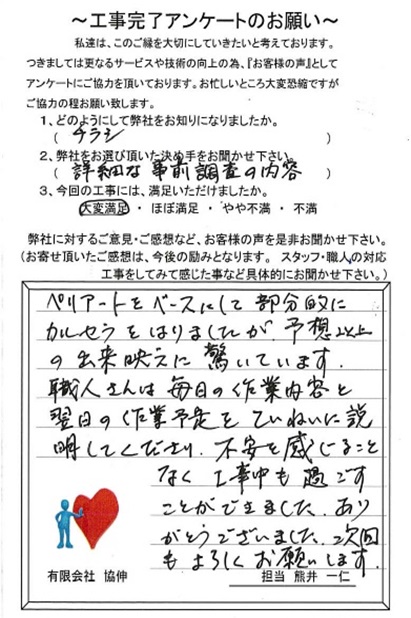 ～工事完了アンケートのお願い～
私達は、このご縁を大切にしていきたいと考えております。
つきましては更なるサービスや技術の向上の為、『お客様の声』として
アンケートにご協力を頂いております。お忙しいところ大変恐縮ですが
ご協力の程お願い致します。
1、どのようにして弊社をお知りになりましたか。
( チラシ )
2、弊社をお選び頂いた決め手をお聞かせ下さい。
( 詳細な事前調査の内容 )
3、今回の工事には、満足いただけましたか。
大変満足 ・ ほぼ満足 ・ やや不満 ・ 不満
弊社に対するご意見・ご感想など、お客様の声を是非お聞かせ下さい。
（お寄せ頂いたご感想は、今後の励みとなります。 スタッフ・職人の対応
工事をしてみて感じた事など具体的にお聞かせ下さい。）
ペリアートをベースにして部分的に
カルセラをはりましたが、予想以上
の出来映えに驚いています。
職人さんは毎日の作業内容と
翌日の作業予定をていねいに説
明してくださり、不安を感じること
なく工事中も過ごす
ことができました。あり
がとうございました。次回
もよろしくお願いします。
有限会社 協伸
担当 熊井 一仁